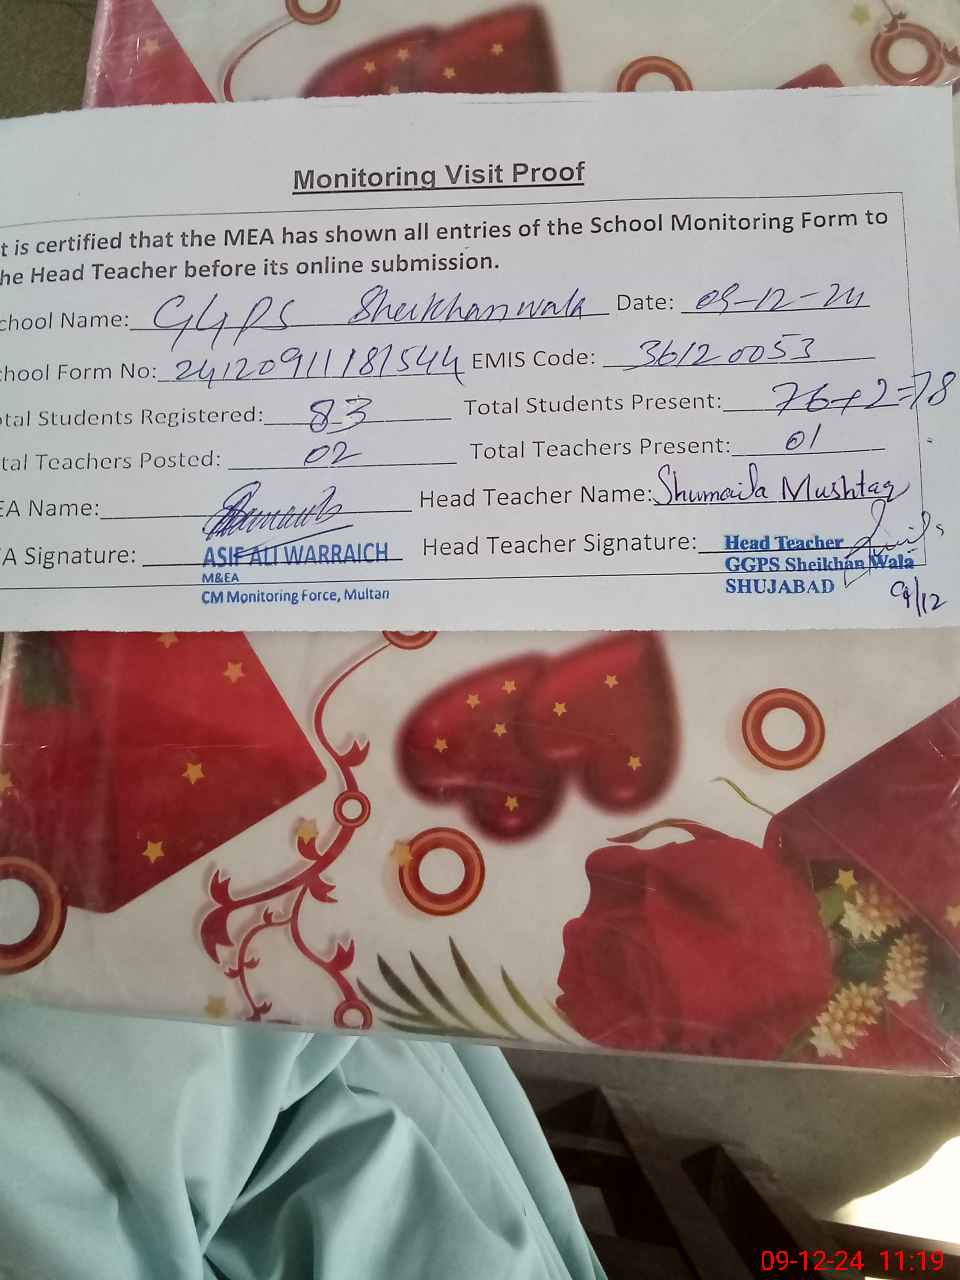 Monitoring Visit Proof
t is certified that the MEA has shown all entries of the School Monitoring Form to
he Head Teacher before its online submission.
chool Name: GGPS Sheikhanwala Date: 09-12-24
hool Form No: 24120911181544 EMIS Code: 36120053
tal Students Registered: 83 Total Students Present: 76+2=78
tal Teachers Posted: 02 Total Teachers Present: 01
EA Name: Head Teacher Name: Shumaila Mushtaq
A Signature: ASIF ALI WARRAICH Head Teacher Signature: Head Teacher
M&EA GGPS Sheikhan Wala
CM Monitoring Force, Multan SHUJABAD 9/12
09-12-24 11:19